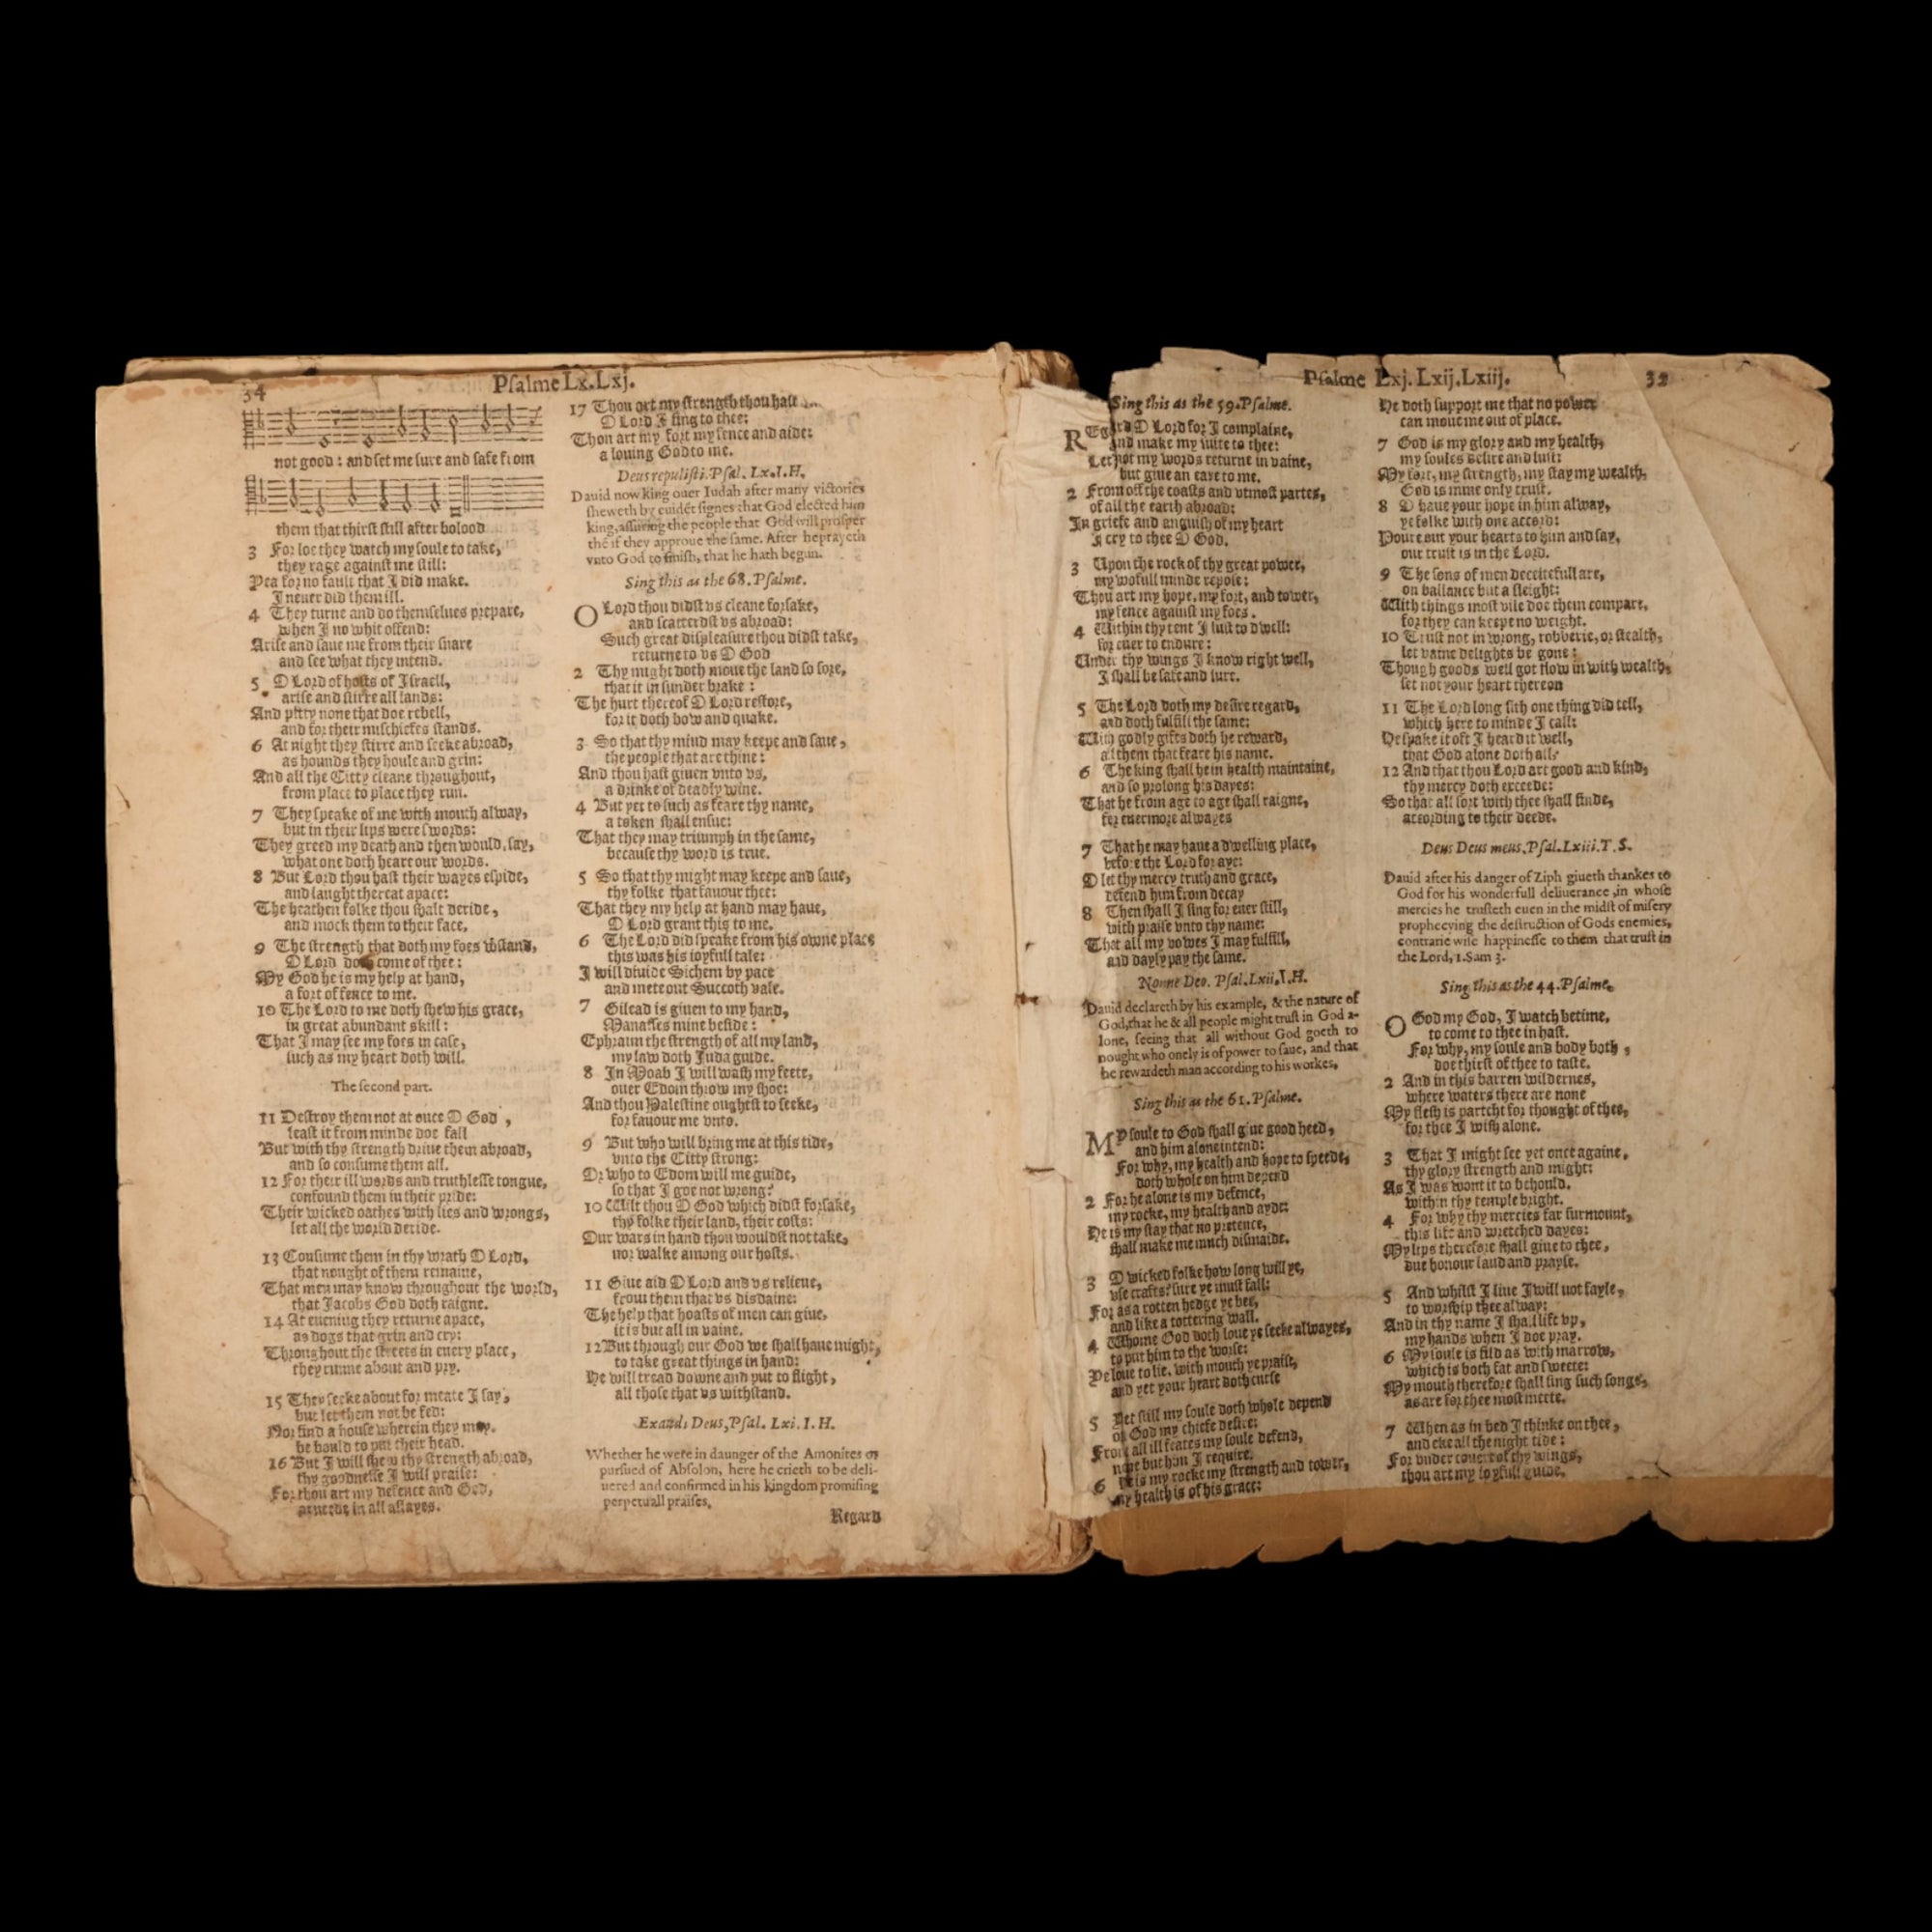 34
Psalme Lx. Lxj.
not good : and set me sure and safe from
them that thirst still after bolood
3 For loe they watch my soule to take,
they rage against me still:
Yea for no fault that I did make.
I neuer did them ill.
4 They turne and do themselues prepare,
when I no whit offend:
Arise and saue me from their snare
and see what they intend.
5 O Lord of hosts of Israell,
arise and stirre all lands:
And pitty none that doe rebell,
and for their mischiefes stands.
6 At night they stirre and seeke abroad,
as hounds they houle and grin:
And all the Citty cleane throughout,
from place to place they run.
7 They speake of me with mouth alway,
but in their lips were swords:
They greed my death and then would say,
what one doth heare our words.
8 But Lord thou hast their wayes espide,
and laught thereat apace:
The heathen folke thou shalt deride,
and mock them to their face,
9 The strength that doth my foes wstand,
O Lord doth come of thee:
My God he is my help at hand,
a fort of fence to me.
10 The Lord to me doth shew his grace,
in great abundant skill:
That I may see my foes in case,
such as my heart doth will.
The second part.
11 Destroy them not at once O God ,
least it from minde doe fall
But with thy strength driue them abroad,
and so consume them all.
12 For their ill words and truthlesse tongue,
confound them in their pride:
Their wicked oathes with lies and wrongs,
let all the world deride.
13 Consume them in thy wrath O Lord,
that nought of them remaine,
That men may know throughout the world,
that Jacobs God doth raigne.
14 At euening they returne apace,
as dogs that grin and cry:
Throughout the streets in euery place,
they runne about and pry.
15 They seeke about for meate I say,
but let them not be fed:
Nor find a house wherein they may.
be bould to put their head.
16 But I will shew thy strength abroad,
thy goodnesse I will praise:
For thou art my defence and God,
at neede in all assayes.
17 Thou art my strength thou hast
O Lord I sing to thee:
Thou art my fort my fence and aide:
a louing God to me.
Deus repulisti. Psal. Lx. I. H.
Dauid now king ouer Iudah after many victories
sheweth by euidẽt signes that God elected him
king, assuring the people that God will prosper
thẽ if they approue the same. After he prayeth
vnto God to finish, that he hath begun.
Sing this as the 68. Psalme.
O Lord thou didst vs cleane forsake,
and scatterdst vs abroad:
Such great displeasure thou didst take,
returne to vs O God
2 Thy might doth moue the land so sore,
that it in sunder brake :
The hurt thereof O Lord restore,
for it doth bow and quake.
3 So that thy mind may keepe and saue ,
the people that are thine :
And thou hast giuen vnto vs,
a drinke of deadly wine.
4 But yet to such as feare thy name,
a token shall ensue:
That they may triumph in the same,
because thy word is true.
5 So that thy might may keepe and saue,
thy folke that fauour thee:
That they my help at hand may haue,
O Lord grant this to me.
6 The Lord did speake from his owne place
this was his ioyfull tale:
I will diuide Sichem by pace
and mete out Succoth vale.
7 Gilead is giuen to my hand,
Manasses mine beside :
Ephraim the strength of all my land,
my law doth Juda guide.
8 In Moab I will wash my feete,
ouer Edom throw my shoe:
And thou Palestine oughtst to seeke,
for fauour me vnto.
9 But who will bring me at this tide,
vnto the Citty strong:
Or who to Edom will me guide,
so that I goe not wrong?
10 Wilt thou O God which didst forsake,
thy folke their land, their costs:
Our wars in hand thou wouldst not take,
nor walke among our hosts.
11 Giue aid O Lord and vs relieue,
from them that vs disdaine:
The help that hoasts of men can giue,
it is but all in vaine.
12 But through our God we shall haue might,
to take great things in hand:
He will tread downe and put to flight ,
all those that vs withstand.
Exaudi Deus, Psal. Lxi. I. H.
Whether he were in daunger of the Amonites or
pursued of Absolon, here he crieth to be deli-
uered and confirmed in his kingdom promising
perpetuall praises,
Regard
Psalme Lxj. Lxij. Lxiij.
Sing this as the 59. Psalme.
REgard O Lord for I complaine,
and make my suite to thee:
Let not my words returne in vaine,
but giue an eare to me.
2 From off the coasts and vtmost partes,
of all the earth abroad:
In griefe and anguish of my heart
I cry to thee O God.
3 Upon the rock of thy great power,
my wofull minde repose:
Thou art my hope, my fort, and tower,
my fence against my foes.
4 Within thy tent I lust to dwell:
for euer to endure :
Under thy wings I know right well,
I shall be safe and sure.
5 The Lord doth my desire regard,
and doth fulfill the same:
With godly gifts doth he reward,
all them that feare his name.
6 The king shall he in health maintaine,
and so prolong his dayes:
That he from age to age shall raigne,
for euermore alwayes
7 That he may haue a dwelling place,
before the Lord for aye:
O let thy mercy truth and grace,
defend him from decay
8 Then shall I sing for euer still,
with praise vnto thy name:
That all my vowes I may fulfill,
and dayly pay the same.
Nonne Deo. Psal. Lxii, I. H.
Dauid declareth by his example, & the nature of
God, that he & all people might trust in God a-
lone, seeing that all without God goeth to
nought who onely is of power to saue, and that
he rewardeth man according to his workes,
Sing this as the 61. Psalme.
MY soule to God shall giue good heed,
and him alone intend:
For why, my health and hope to speede,
doth whole on him depend
2 For he alone is my defence,
my rocke, my health and ayde:
He is my stay that no pretence,
shall make me much dismaide.
3 O wicked folke how long will ye,
vse crafts? sure ye must fall:
For as a rotten hedge ye bee,
and like a tottering wall.
4 Whome God doth loue ye seeke alwayes,
to put him to the worse:
Ye loue to lie, with mouth ye praise,
and yet your heart doth curse
5 Yet still my soule doth whole depend
on God my chiefe desire:
From all ill feates my soule defend,
none but him I require.
6 He is my rocke my strength and tower,
my health is of his grace:
He doth support me that no power
can moue me out of place.
7 God is my glory and my health,
my soules desire and lust:
My fort, my strength, my stay my wealth,
God is mine only trust.
8 O haue your hope in him alway,
ye folke with one accord:
Poure out your hearts to him and say,
our trust is in the Lord.
9 The sons of men deceitefull are,
on ballance but a sleight:
With things most vile doe them compare,
for they can keepe no weight.
10 Trust not in wrong, robberie, or stealth,
let vaine delights be gone :
Though goods well got flow in with wealth,
set not your heart thereon
11 The Lord long sith one thing did tell,
which here to minde I call:
He spake it oft I heard it well,
that God alone doth all.
12 And that thou Lord art good and kind,
thy mercy doth exceede:
So that all sort with thee shall finde,
according to their deede.
Deus Deus meus. Psal. Lxiii. T. S.
Dauid after his danger of Ziph giueth thankes to
God for his wonderfull deliuerance, in whose
mercies he trusteth euen in the midst of misery
prophecying the destruction of Gods enemies,
contrarie wise happinesse to them that trust in
the Lord, 1. Sam 3.
Sing this as the 44. Psalme.
O God my God, I watch betime,
to come to thee in hast.
For why, my soule and body both ,
doe thirst of thee to taste.
2 And in this barren wildernes,
where waters there are none
My flesh is partcht for thought of thee,
for thee I wish alone.
3 That I might see yet once againe,
thy glory strength and might:
As I was wont it to behould.
within thy temple bright.
4 For why thy mercies far surmount,
this life and wretched dayes:
My lips therefore shall giue to thee ,
due honour laud and prayse.
5 And whilst I liue I will not fayle,
to worship thee alway:
And in thy name I shall lift vp,
my hands when I doe pray.
6 My soule is fild as with marrow,
which is both fat and sweete:
My mouth therefore shall sing such songs,
as are for thee most meete.
7 When as in bed I thinke on thee,
and eke all the night tide :
For vnder couert of thy wings,
thou art my ioyfull guide.